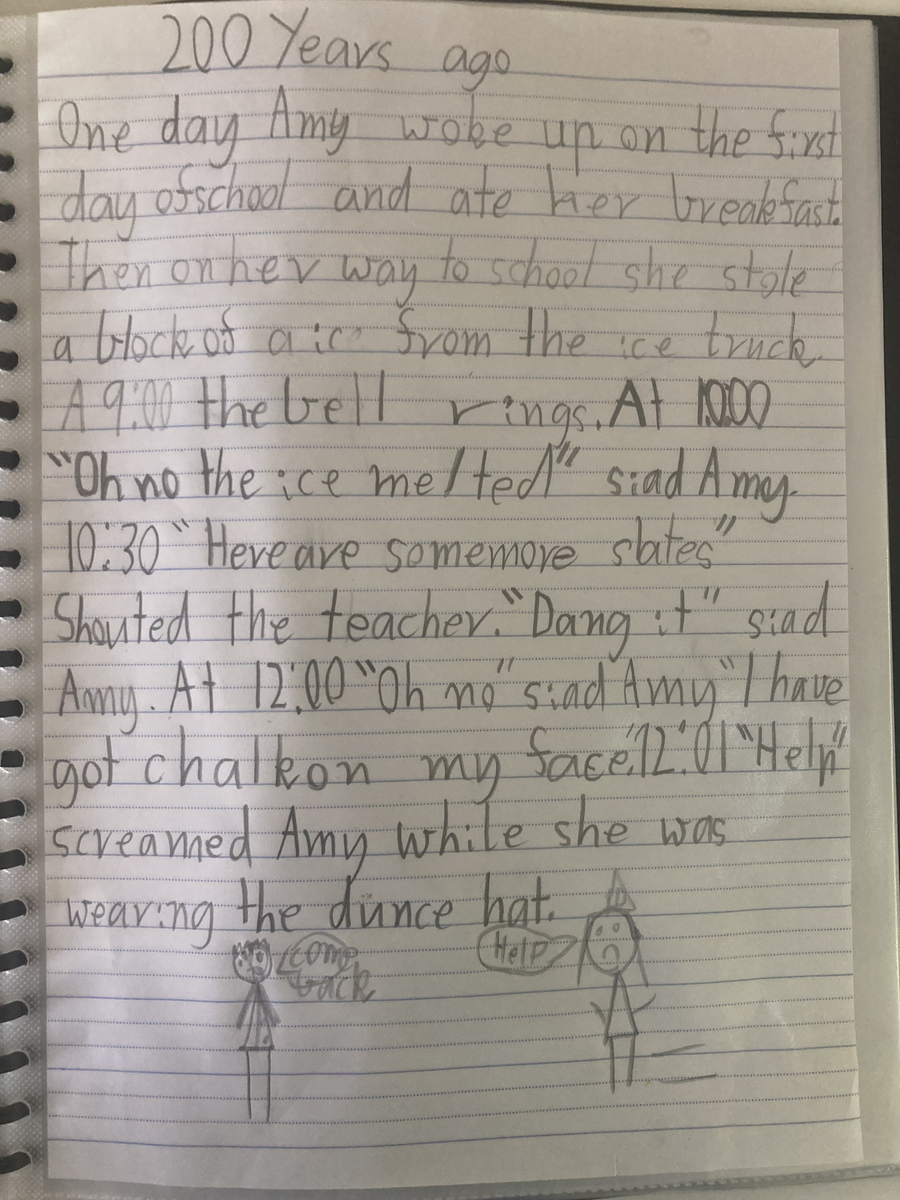 200 Years ago
One day Amy woke up on the first
day ofschool and ate her breakfast.
Then on her way to school she stole
a block of a ice from the ice truck.
A 9:00 the bell rings. At 10:00
"Oh no the ice melted" siad Amy.
10:30 "Here are somemore slates"
Shouted the teacher. "Dang it" siad
Amy. At 12:00 "Oh no" siad Amy "I have
got chalkon my face." 12:01 "Help"
screamed Amy while she was
wearing the dunce hat.
Come
back
Help